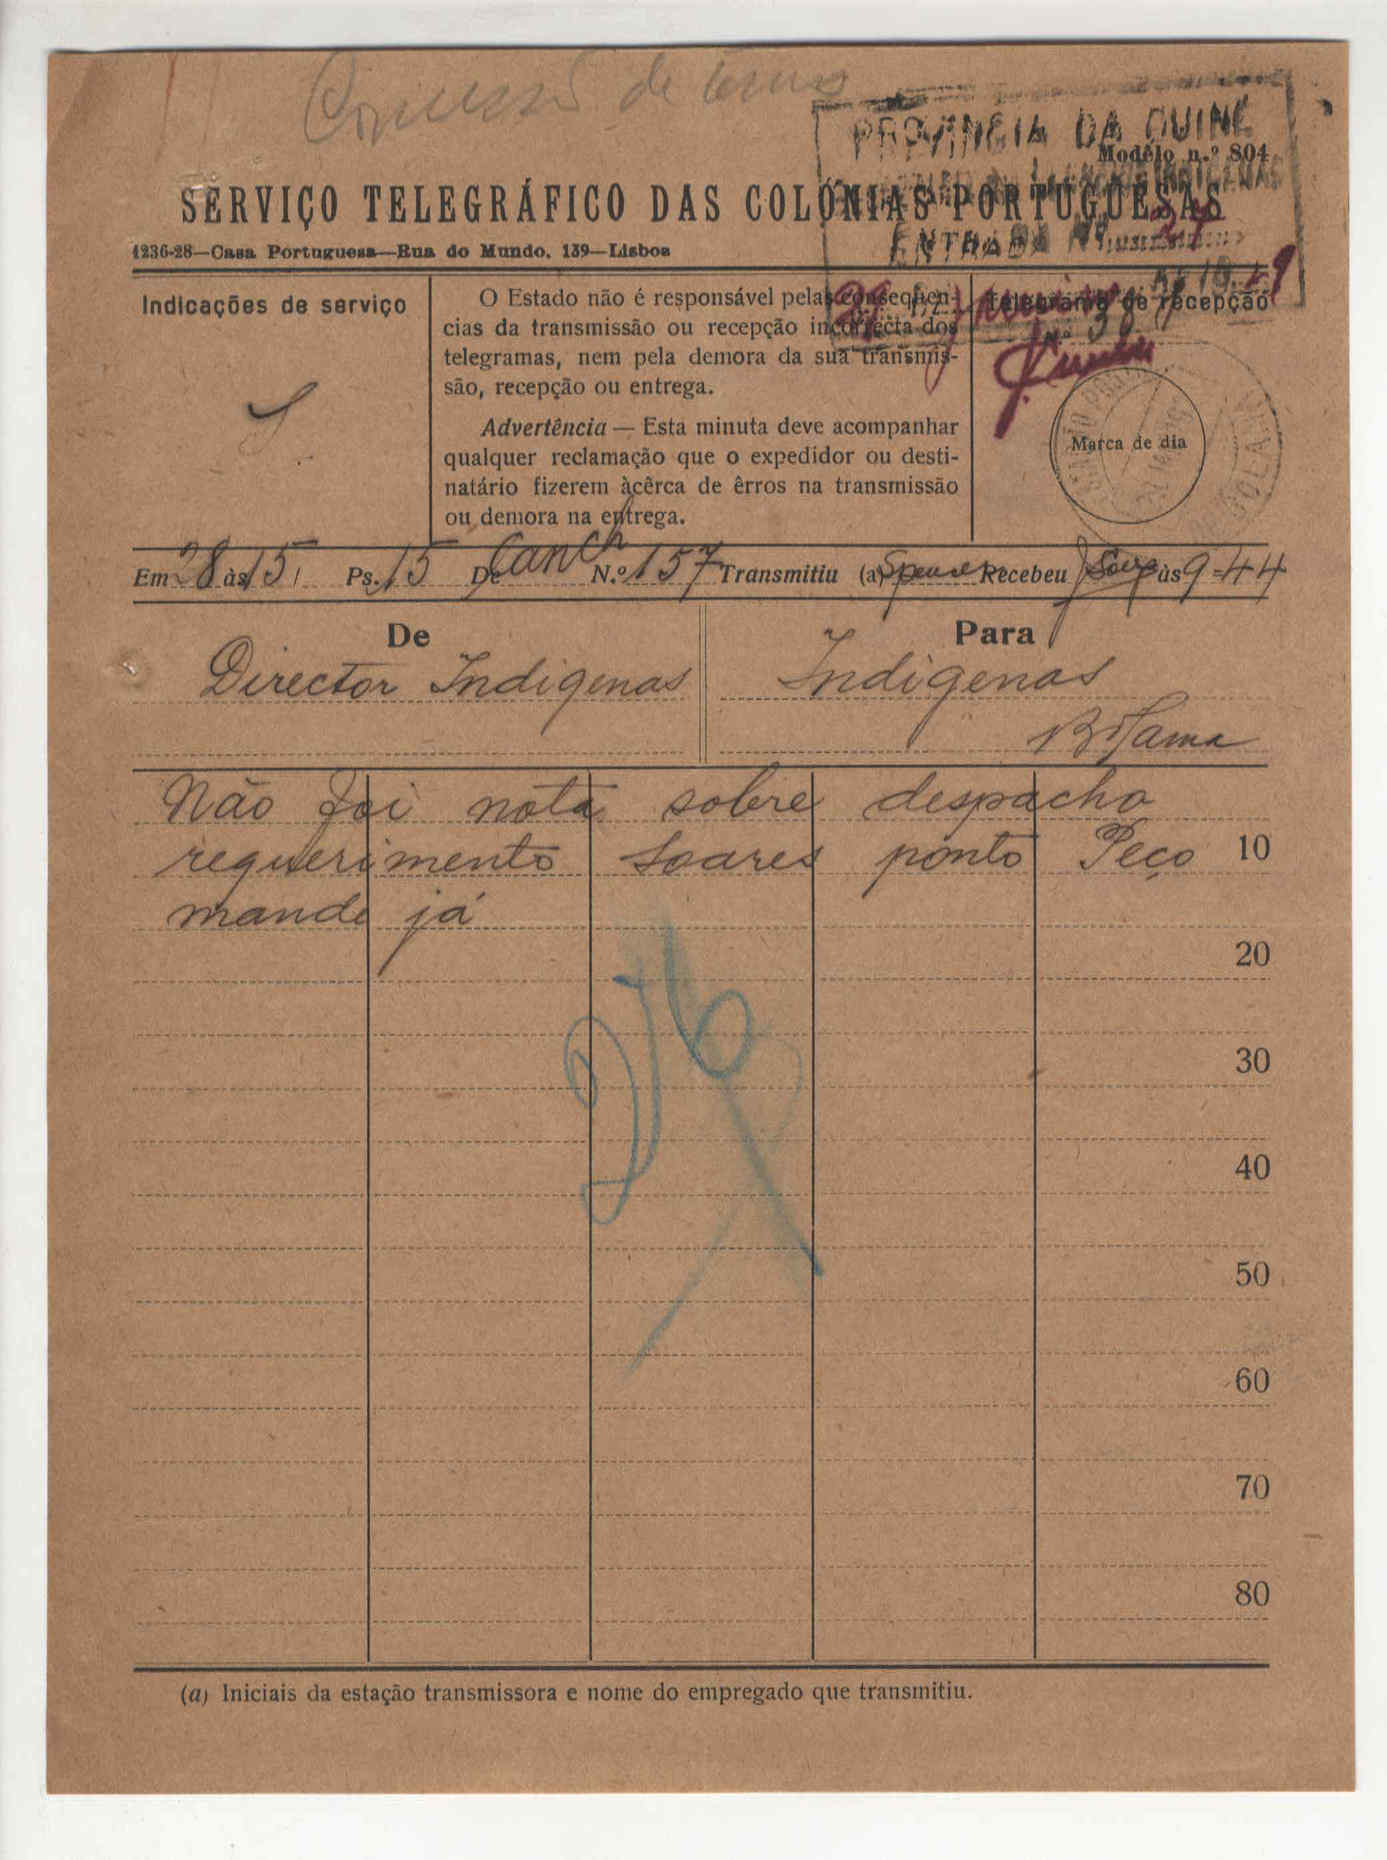 Concessão de
PROVINCIA DA GUINÉ
Modêlo n.º 804
SERVIÇO TELEGRÁFICO DAS COLÓNIAS PORTUGUESAS
ENTRADA Nº 27
1236-28—Casa Portuguesa—Rua do Mundo, 139—Lisboa
Indicações de serviço
O Estado não é responsável pelas consequên-
cias da transmissão ou recepção incorrecta dos
telegramas, nem pela demora da sua transmis-
são, recepção ou entrega.
Advertência — Esta minuta deve acompanhar
qualquer reclamação que o expedidor ou desti-
natário fizerem àcêrca de êrros na transmissão
ou demora na entrega.
Telegrama de recepção
N.º
Marca de dia
Em 28 às 15 Ps. 15 De Canch N.º 157 Transmitiu (a) Recebeu às 9=44
De
Director Indigenas
Para
Indigenas
Bolama
Não foi nota sobre despacho
requerimento Soares ponto Peço 10
mande já
20
30
40
50
60
70
80
(a) Iniciais da estação transmissora e nome do empregado que transmitiu.